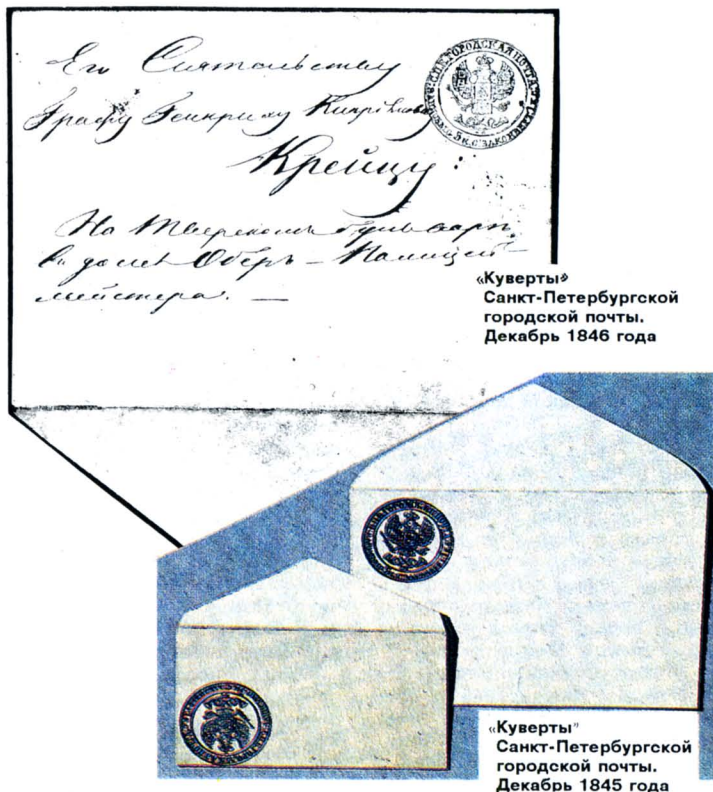 Его Сиятельству
Графу Генриху Кипріановичу
Крейцу:
На Тверскомъ бульварѣ,
въ домѣ Оберъ – Полицей-
мейстера. —
ГОРОДСКАЯ ПОЧТА
5 к. С. ЗА КОН
«Куверты»
Санкт-Петербургской
городской почты.
Декабрь 1846 года
«Куверты”
Санкт-Петербургской
городской почты.
Декабрь 1845 года